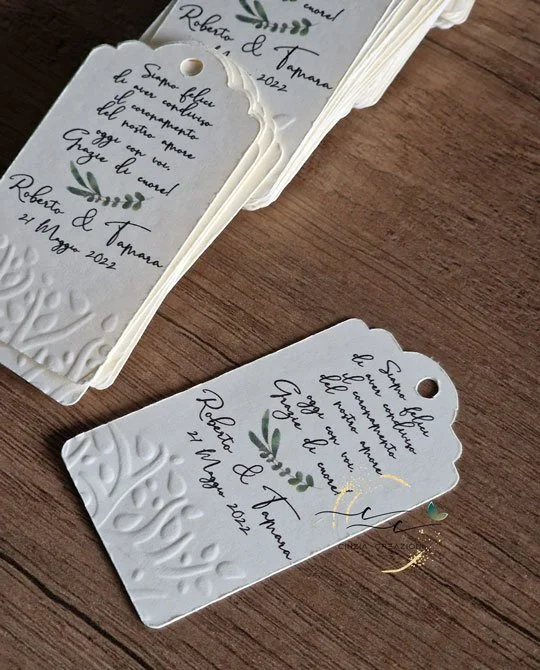 cuore!
Roberto & Tamara
2022
Siamo felici
di aver condiviso
il coronamento
del nostro amore
oggi con voi.
Grazie di cuore!
Roberto & Tamara
21 Maggio 2022
Siamo felici
di aver condiviso
il coronamento
del nostro amore
oggi con voi.
Grazie di cuore!
Roberto & Tamara
21 Maggio 2022